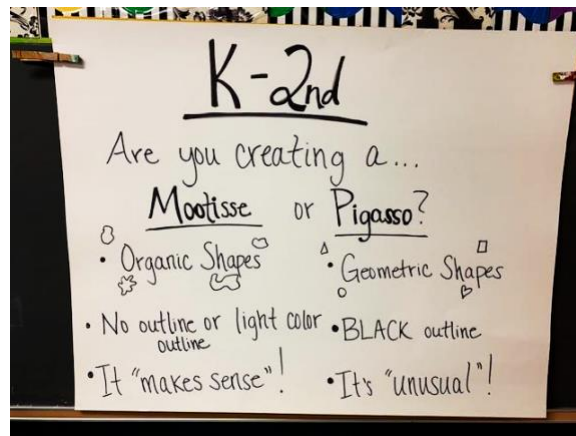 K-2nd
Are you creating a...
Mootisse or Pigasso?
• Organic Shapes
• No outline or light color outline
• It "makes sense"!
• Geometric Shapes
• BLACK outline
• It's "unusual"!